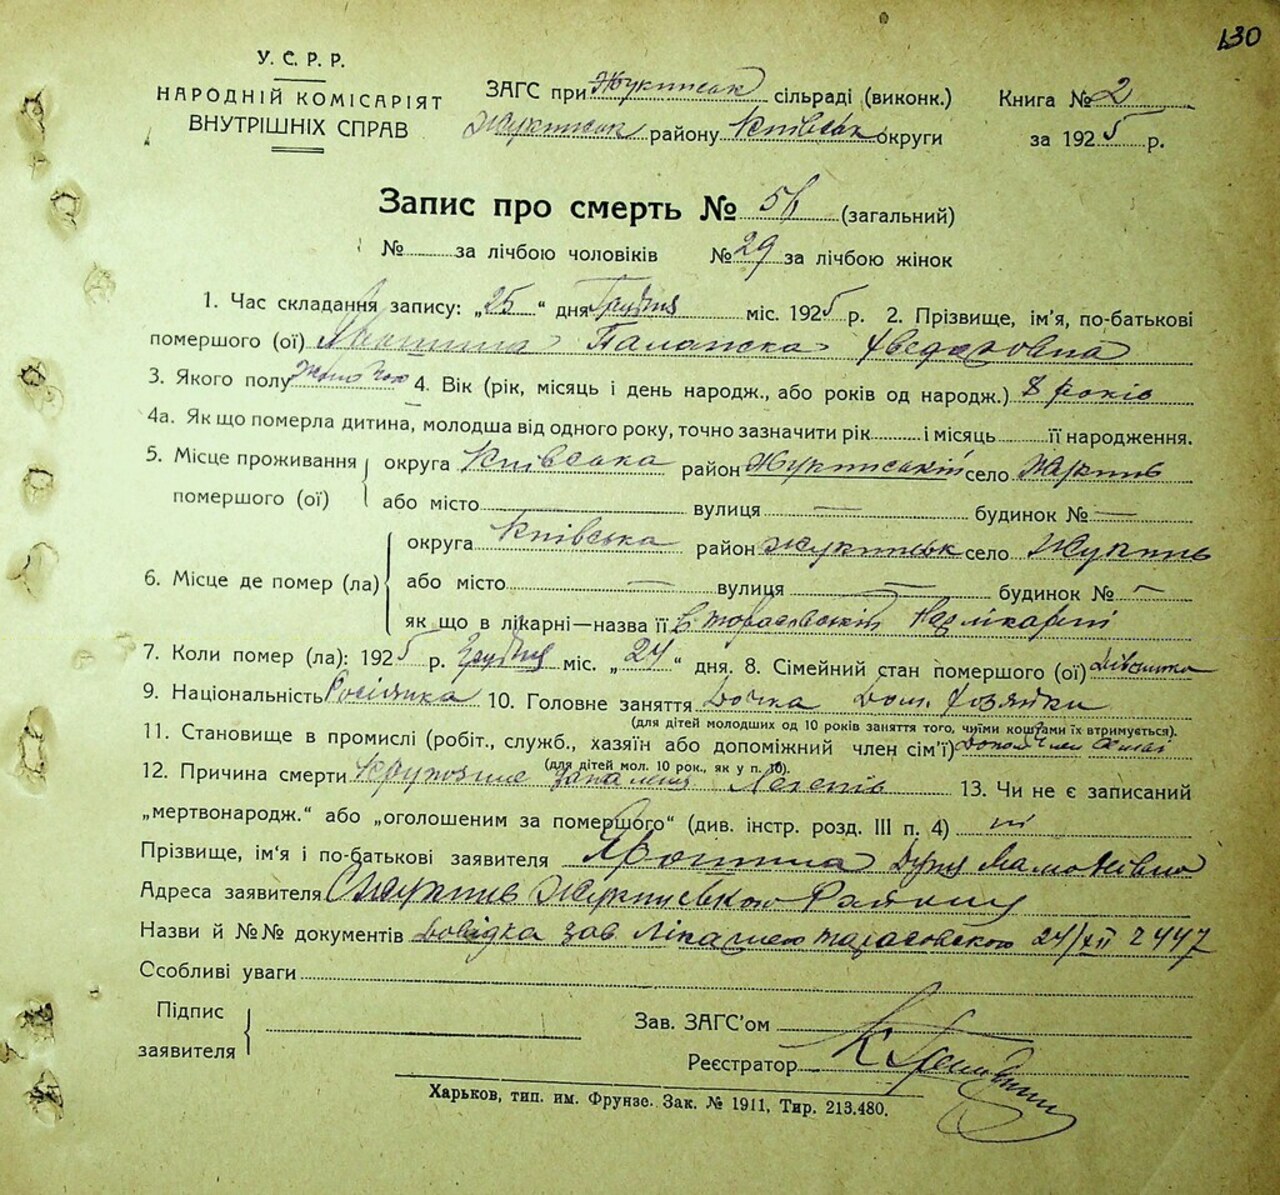 130
У. С. Р. Р.
НАРОДНІЙ КОМІСАРІЯТ
ВНУТРІШНІХ СПРАВ
ЗАГС при Жукинськ сільраді (виконк.)
Жукинськ району Київськ округи
Книга № 2
за 1925 р.
Запис про смерть № 56 (загальний)
№ за лічбою чоловіків № 29 за лічбою жінок
1. Час складання запису: „25“ дня Грудня міс. 1925 р. 2. Прізвище, ім'я, по-батькові
помершого (ої) Федоровна
3. Якого полу Жіночого 4. Вік (рік, місяць і день народж., або років од народж.) 8 років
4а. Як що померла дитина, молодша від одного року, точно зазначити рік і місяць її народження.
5. Місце проживання помершого (ої) округа Київська район Жукинський село Жукин
або місто — вулиця — будинок № —
6. Місце де помер (ла) округа Київська район Жукинськ село Жукин
або місто — вулиця — будинок № —
як що в лікарні—назва її в Тарасовській лікарні
7. Коли помер (ла): 1925 р. Грудня міс. „24“ дня. 8. Сімейний стан помершого (ої) дівчинка
9. Національність Росіянка 10. Головне заняття Дочка Дом. Хозяйки
(для дітей молодших од 10 років заняття того, чиїми коштами їх втримується).
11. Становище в промислі (робіт., служб., хазяїн або допоміжний член сім'ї) Допом. член
(для дітей мол. 10 рок., як у п. 10).
12. Причина смерти Крупозне запалення Легенів 13. Чи не є записаний
„мертвонародж.“ або „оголошеним за помершого“ (див. інстр. розд. III п. 4) ні
Прізвище, ім'я і по-батькові заявителя
Адреса заявителя С Жукин Жукинського Району
Назви й №№ документів Довідка зав Лікарнею Тарасовською 24/XII 2447
Ссобливі уваги
Підпис
заявителя
Зав. ЗАГС'ом
Реєстратор
Харьков, тип. им. Фрунзе. Зак. № 1911, Тир. 213.480.